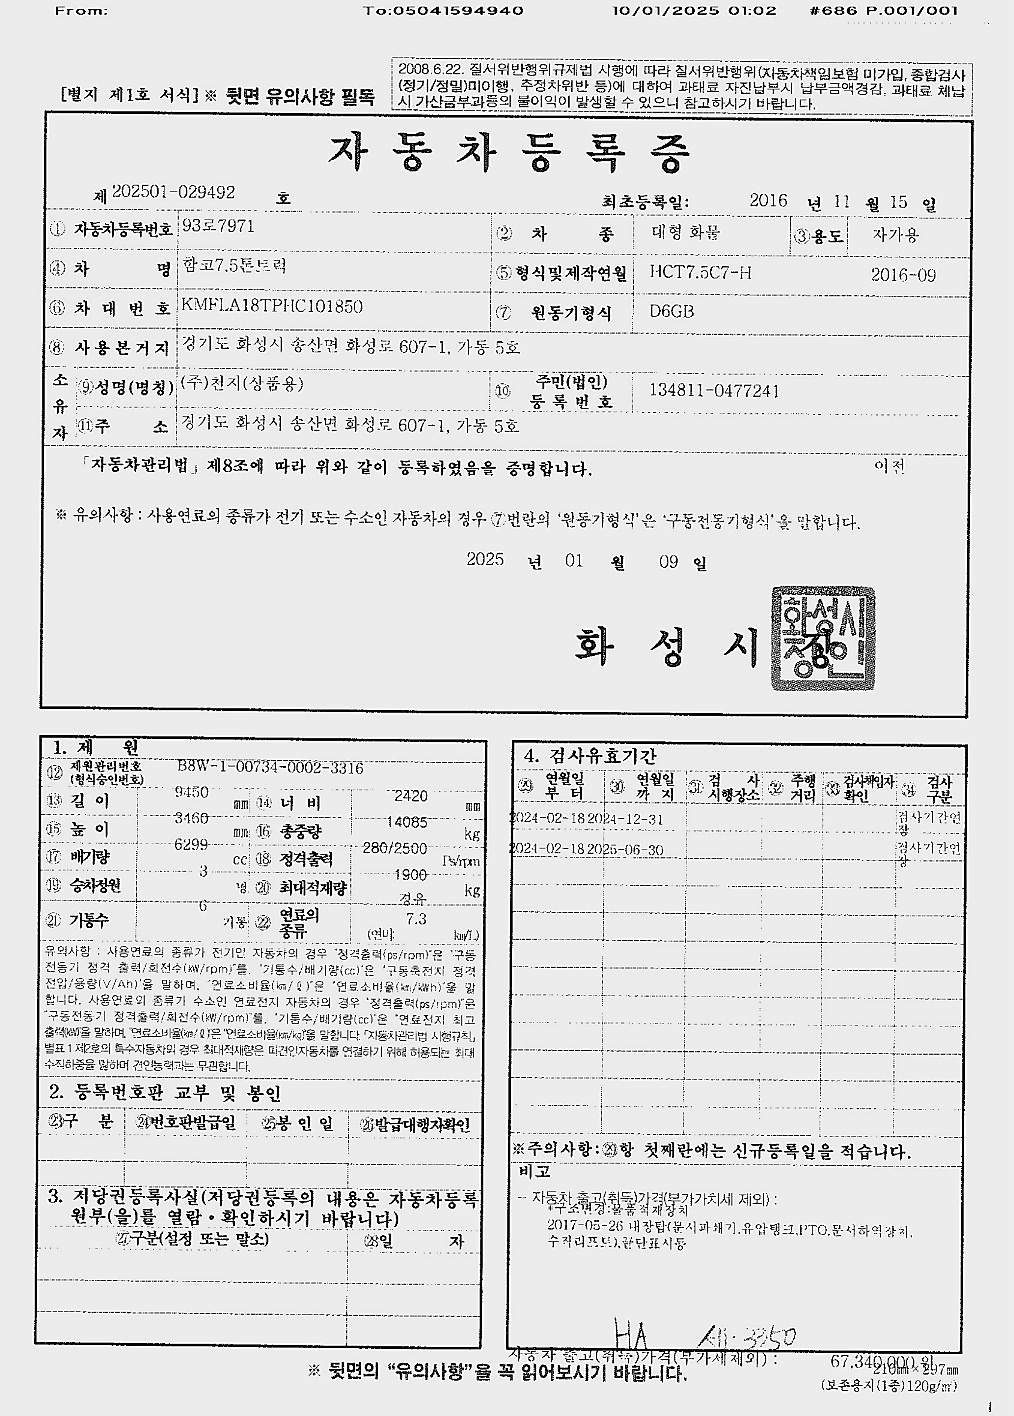 From: To:05041594940 10/01/2025 01:02 #686 P.001/001
2008.6.22. 질서위반행위규제법 시행에 따라 질서위반행위(자동차책임보험 미가입, 종합검사
[별지 제1호 서식] ※ 뒷면 유의사항 필독
(정기/정밀)미이행, 주정차위반 등)에 대하여 과태료 자진납부시 납부금액경감, 과태료 체납
시 가산금부과등의 불이익이 발생할 수 있으니 참고하시기 바랍니다.
자동차등록증
제 202501-029492 호 최초등록일: 2016 년 11 월 15 일
① 자동차등록번호 93로7971 ② 차 종 대형 화물 ③용도 자가용
④ 차 명 함코7.5톤트럭 ⑤ 형식및제작연월 HCT7.5C7-H 2016-09
⑥ 차대번호 KMFLA18TPHC101850 ⑦ 원동기형식 D6GB
⑧ 사용본거지 경기도 화성시 송산면 화성로 607-1, 가동 5호
소유자 ⑨성명(명칭) (주)천지(상품용) ⑩ 주민(법인)등록번호 134811-0477241
⑪주 소 경기도 화성시 송산면 화성로 607-1, 가동 5호
「자동차관리법」 제8조에 따라 위와 같이 등록하였음을 증명합니다. 이전
※ 유의사항 : 사용연료의 종류가 전기 또는 수소인 자동차의 경우 ⑦번란의 '원동기형식'은 '구동전동기형식'을 말합니다.
2025 년 01 월 09 일
화 성 시 장
화성시장인
1. 제 원
⑫ 제원관리번호(형식승인번호) B8W-1-00734-0002-3316
⑬ 길이 9450 mm ⑭ 너비 2420 mm
⑮ 높이 3460 mm ⑯ 총중량 14085 kg
⑰ 배기량 6299 cc ⑱ 정격출력 280/2500 Ps/rpm
⑲ 승차정원 3 명 ⑳ 최대적재량 1900 kg
㉑ 기통수 6 기통 ㉒ 연료의 종류 경유 7.3 (연비 km/L)
유의사항 : 사용연료의 종류가 전기인 자동차의 경우 '정격출력(ps/rpm)'은 '구동
전동기 정격 출력/회전수(kW/rpm)'를, '기통수/배기량(cc)'은 '구동축전지 정격
전압/용량(V/Ah)'을 말하며, '연료소비율(km/ℓ)'은 '연료소비율(km/kWh)'을 말
합니다. 사용연료의 종류가 수소인 연료전지 자동차의 경우 '정격출력(ps/rpm)'은
'구동전동기 정격출력/회전수(kW/rpm)'를, '기통수/배기량(cc)'은 '연료전지 최고
출력(kW)'을 말하며 '연료소비율(km/ℓ)'은 '연료소비율(km/kg)'을 말합니다. 「자동차관리법 시행규칙」
별표 1 제2호의 특수자동차의 경우 최대적재량은 피견인자동차를 연결하기 위해 허용되는 최대
수직하중을 말하며 견인능력과는 무관합니다.
2. 등록번호판 교부 및 봉인
㉓구 분 ㉔번호판발급일 ㉕봉인일 ㉖발급대행자확인
3. 저당권등록사실(저당권등록의 내용은 자동차등록
원부(을)를 열람・확인하시기 바랍니다)
㉗구분(설정 또는 말소) ㉘일 자
4. 검사유효기간
㉙ 연월일부터 ㉚ 연월일까지 ㉛ 검사시행장소 ㉜ 주행거리 ㉝ 검사책임자확인 ㉞ 검사구분
2024-02-18 2024-12-31 검사기간연장
2024-02-18 2025-06-30 검사기간연장
※주의사항:㉙항 첫째란에는 신규등록일을 적습니다.
비고
- 자동차 출고(취득)가격(부가가치세 제외) :
*구조변경:물품적재장치
2017-05-26 내장탑(문서파쇄기,유압탱크,PTO,문서하역장치,
수직리프트),끝단표시등
HA 3350
자동차 출고(취득)가격(부가세제외) : 67,340,000 원
※ 뒷면의 “유의사항”을 꼭 읽어보시기 바랍니다.
210mm×297mm
(보존용지(1종)120g/㎡)